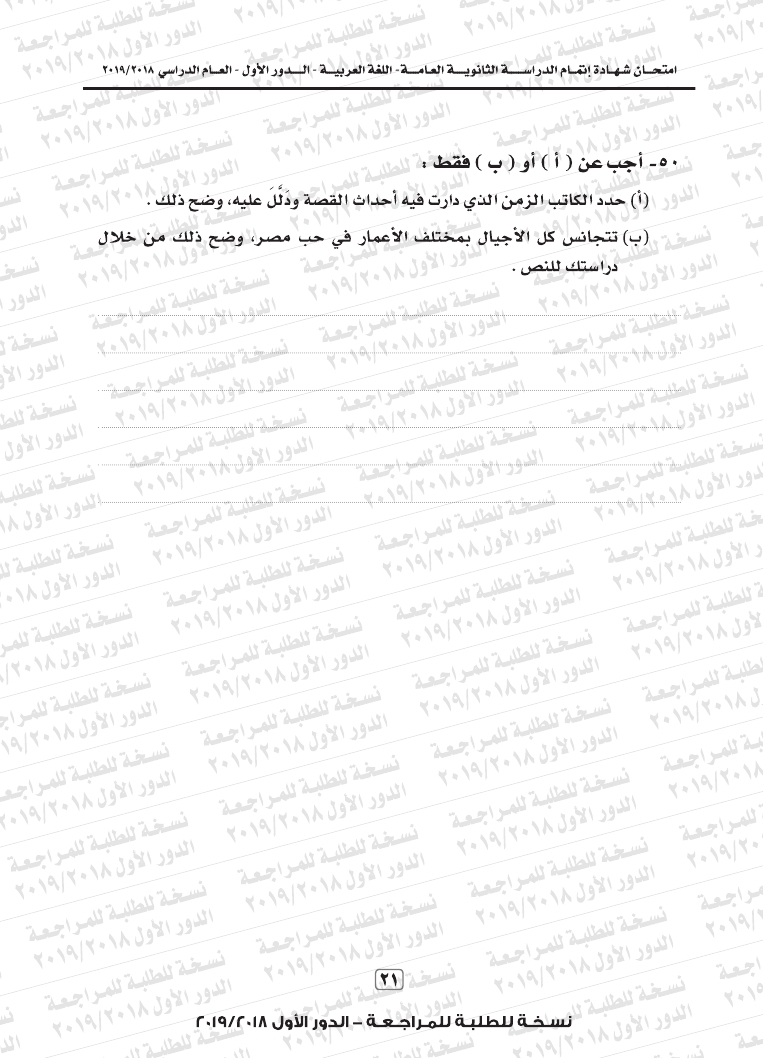 امتحـان شهـادة إتمـام الدراســـة الثانويـــة العامـــة- اللغة العربيـــة - الـــدور الأول - العـام الدراسي ٢٠١٩/٢٠١٨
٥٠- أجب عن ( أ ) أو ( ب ) فقط :
(أ) حدد الكاتب الزمن الذي دارت فيه أحداث القصة ودَلَّلَ عليه، وضح ذلك .
(ب) تتجانس كل الأجيال بمختلف الأعمار في حب مصر، وضح ذلك من خلال
دراستك للنص .
٢١
نسـخـة للطلبـة للمـراجـعـة – الدور الأول ٢٠١٩/٢٠١٨
نسخة للطلبة للمراجعة
الدور الأول ٢٠١٩/٢٠١٨